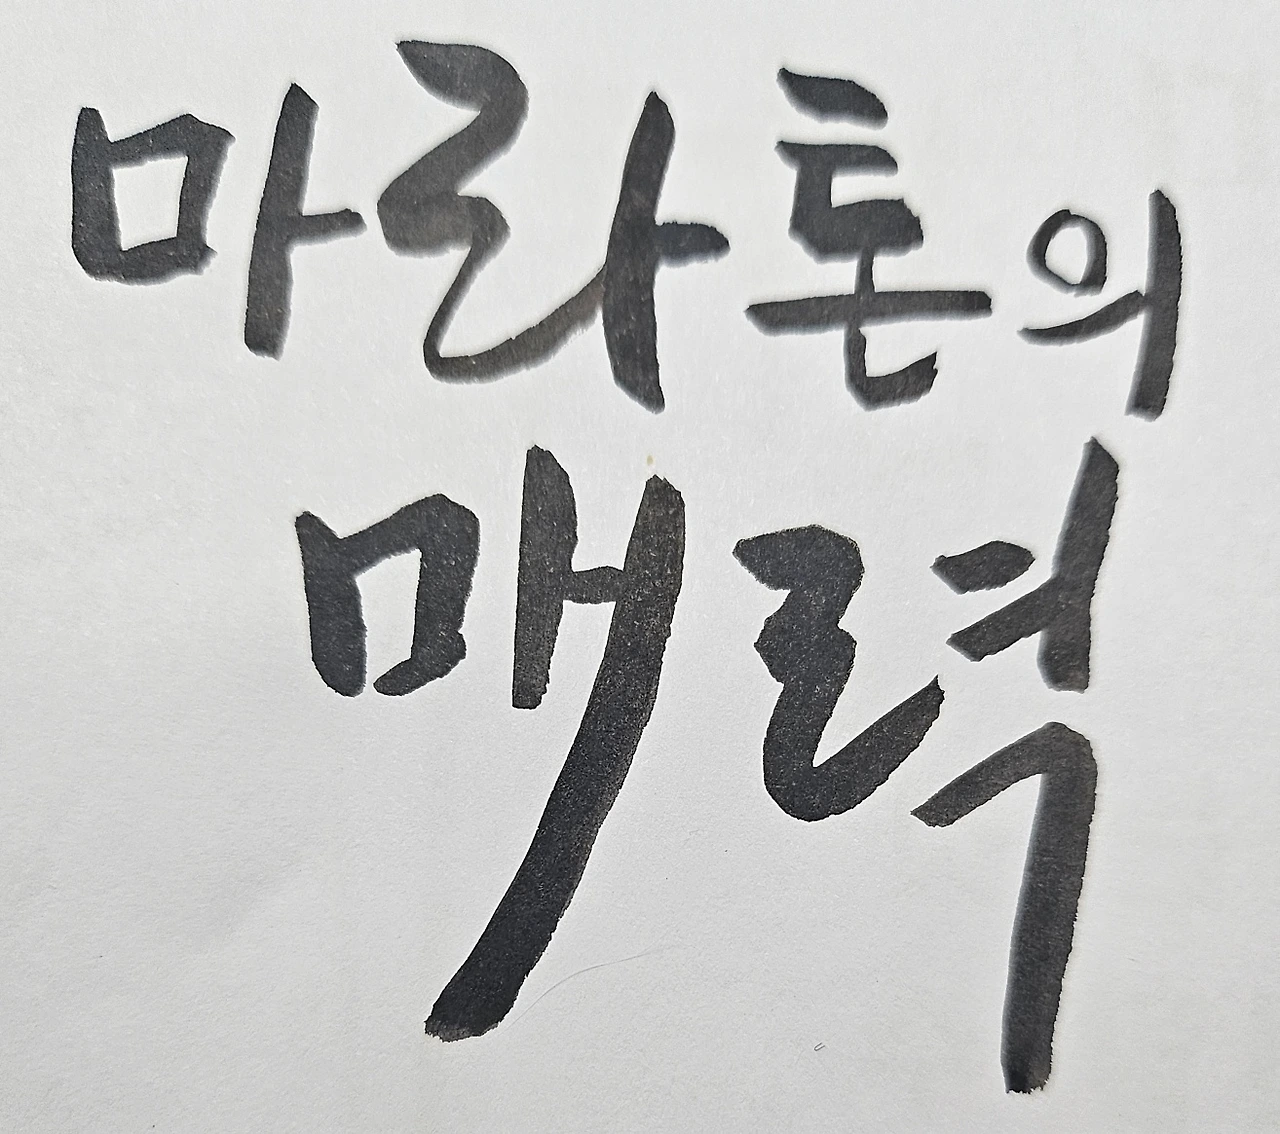 마라톤의
매력